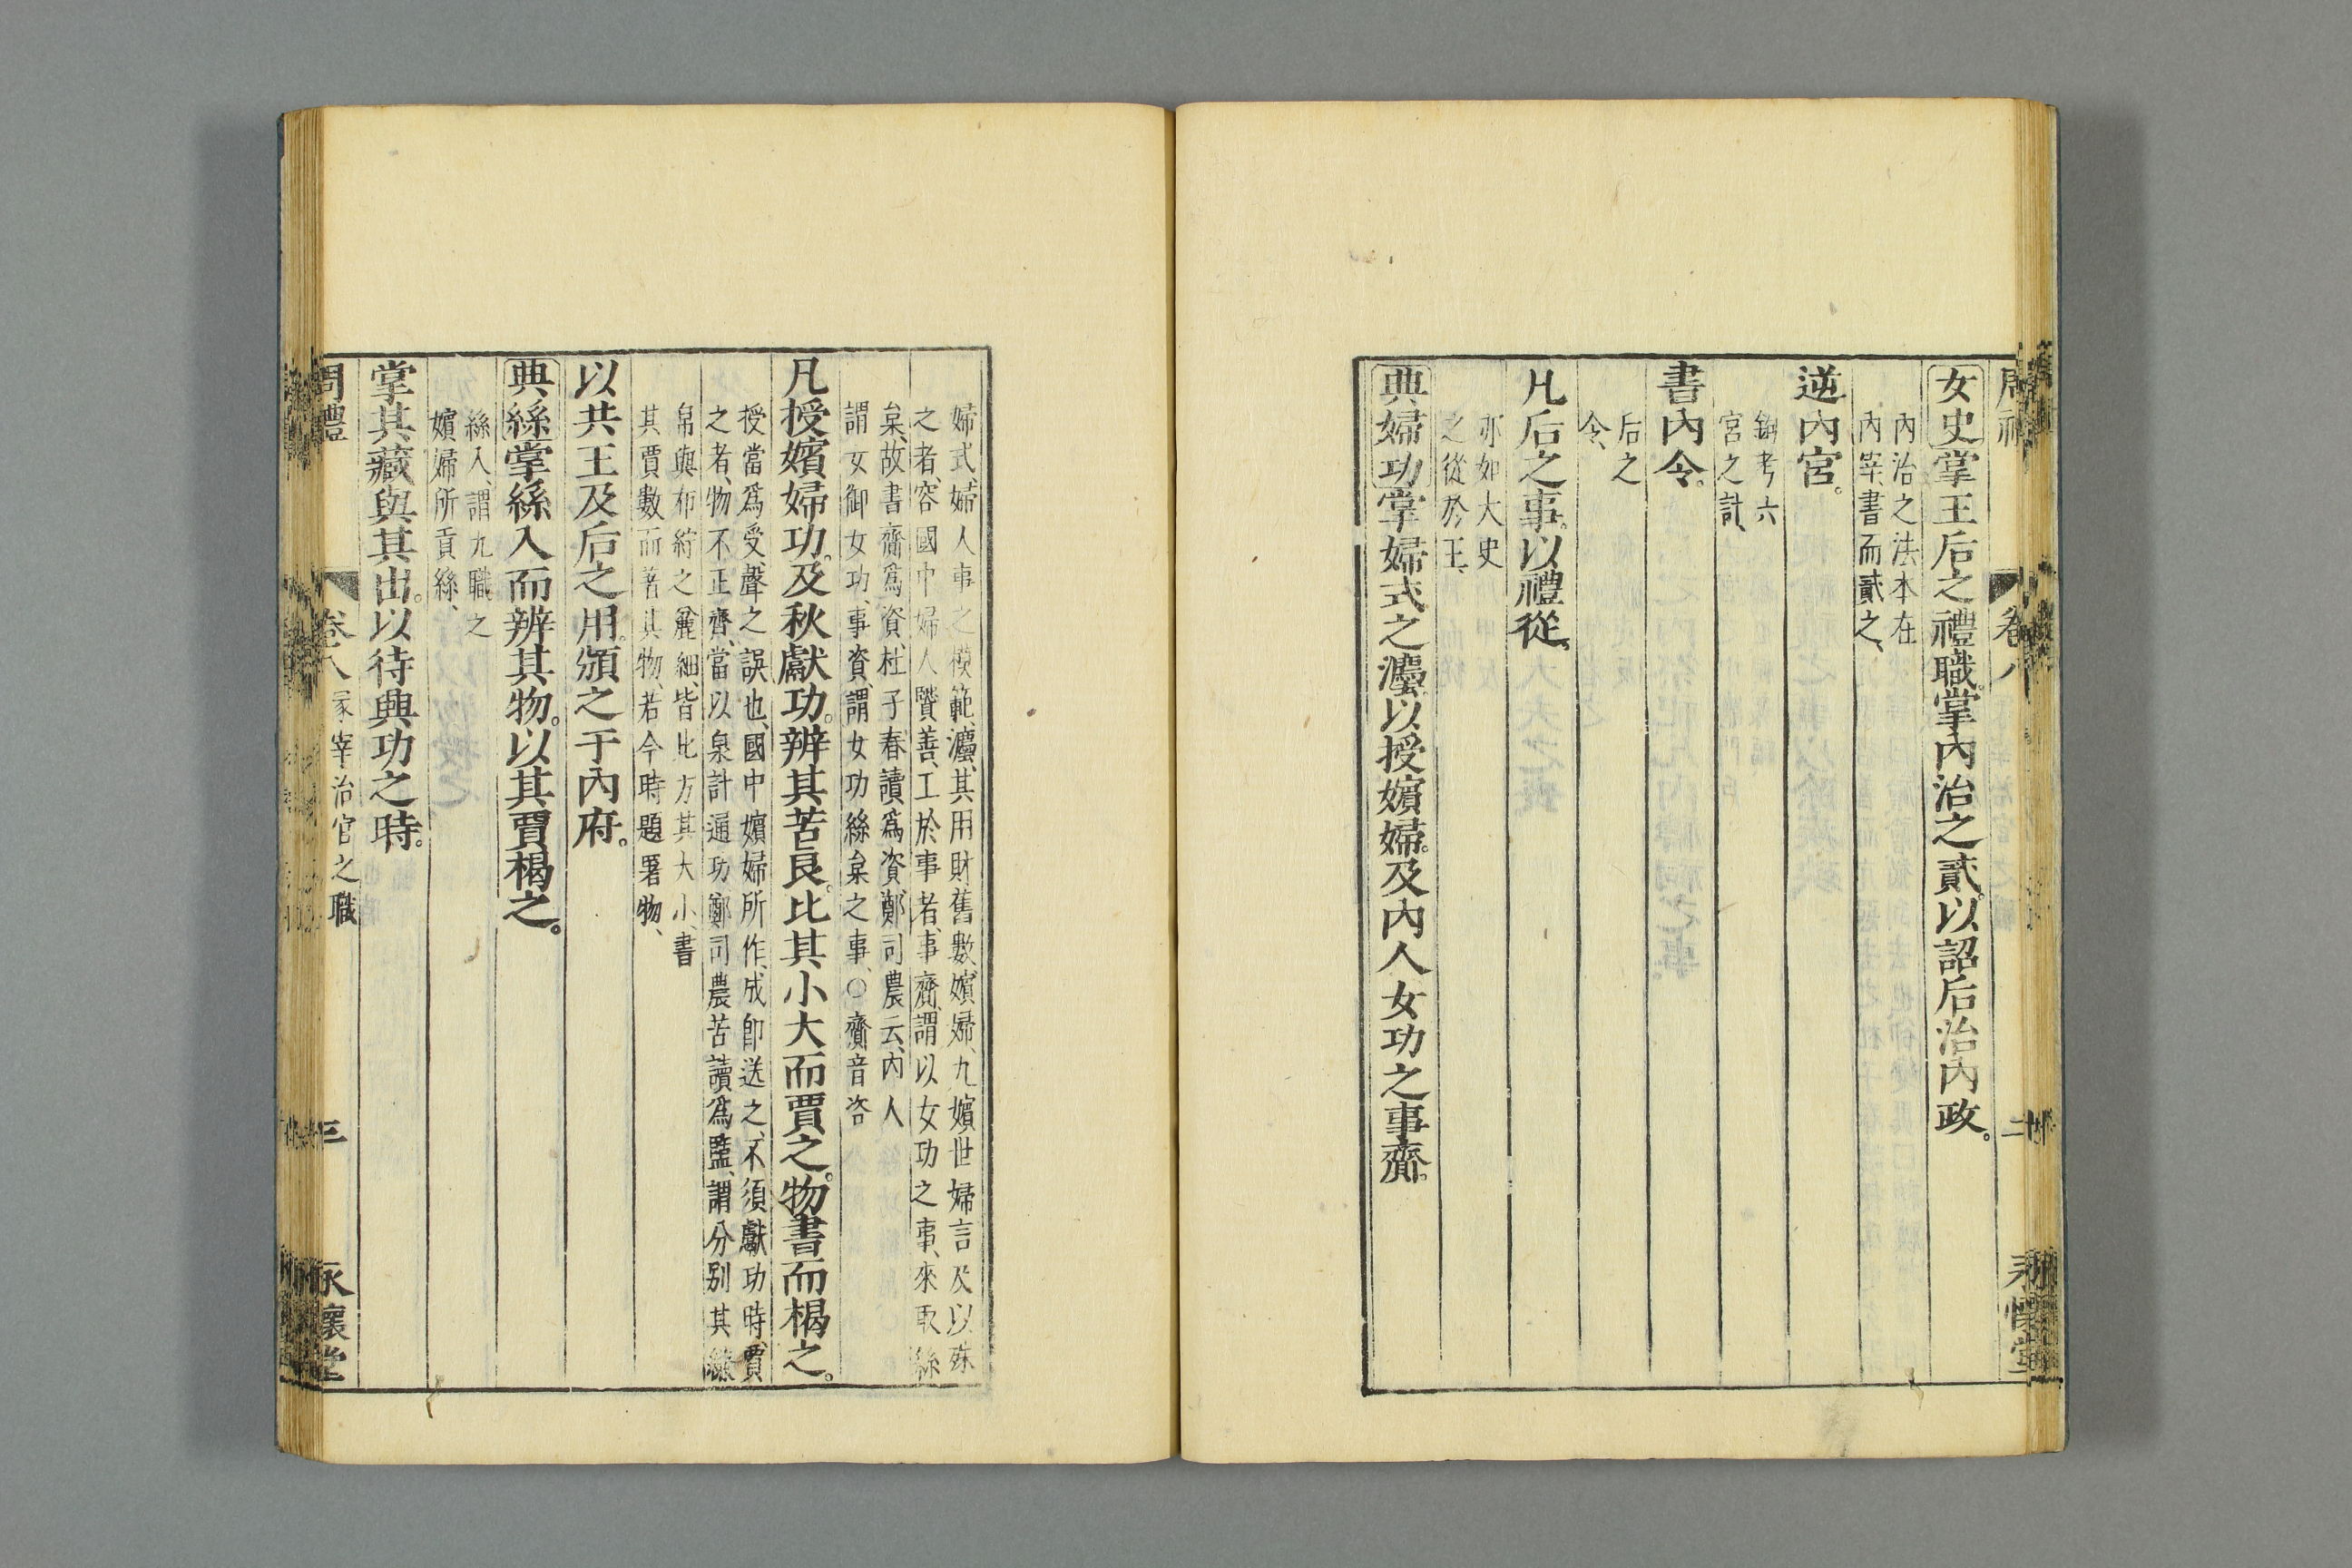 周禮 卷八 二十 永懷堂
女史掌王后之禮職。掌內治之貳。以詔后治內政。
內治之法本在
內宰、書而貳之、
逆內宮。
鉤考六
宮之計、
書內令。
后之
令、
凡后之事。以禮從。
亦如大史
之從於王、
典婦功掌婦式之灋。以授嬪婦。及內人女功之事齎。
婦式、婦人事之模範、灋、其用財舊數、嬪婦、九嬪世婦、言及以殊
之者、容國中婦人賢善、工於事者、事齎、謂以女功之事、來取絲
枲、故書齎爲資、杜子春讀爲資、鄭司農云、內人
謂女御、女功、事資、謂女功絲枲之事、○齎音咨
凡授嬪婦功。及秋獻功。辨其苦良。比其小大而賈之。物書而楬之。
授當爲受、聲之誤也、國中嬪婦所作、成卽送之、不須獻功時、賈
之者、物不正齊、當以泉計通功、鄭司農苦讀爲盬、謂分別其縑
帛與布紵之麤細、皆比方其大小、書
其賈數而著其物、若今時題署物、
以共王及后之用。頒之于內府。
典絲掌絲入而辨其物。以其賈楬之。
絲入、謂九職之
嬪婦所貢絲、
掌其藏與其出。以待興功之時。
周禮 卷八 冢宰治官之職 三 永懷堂